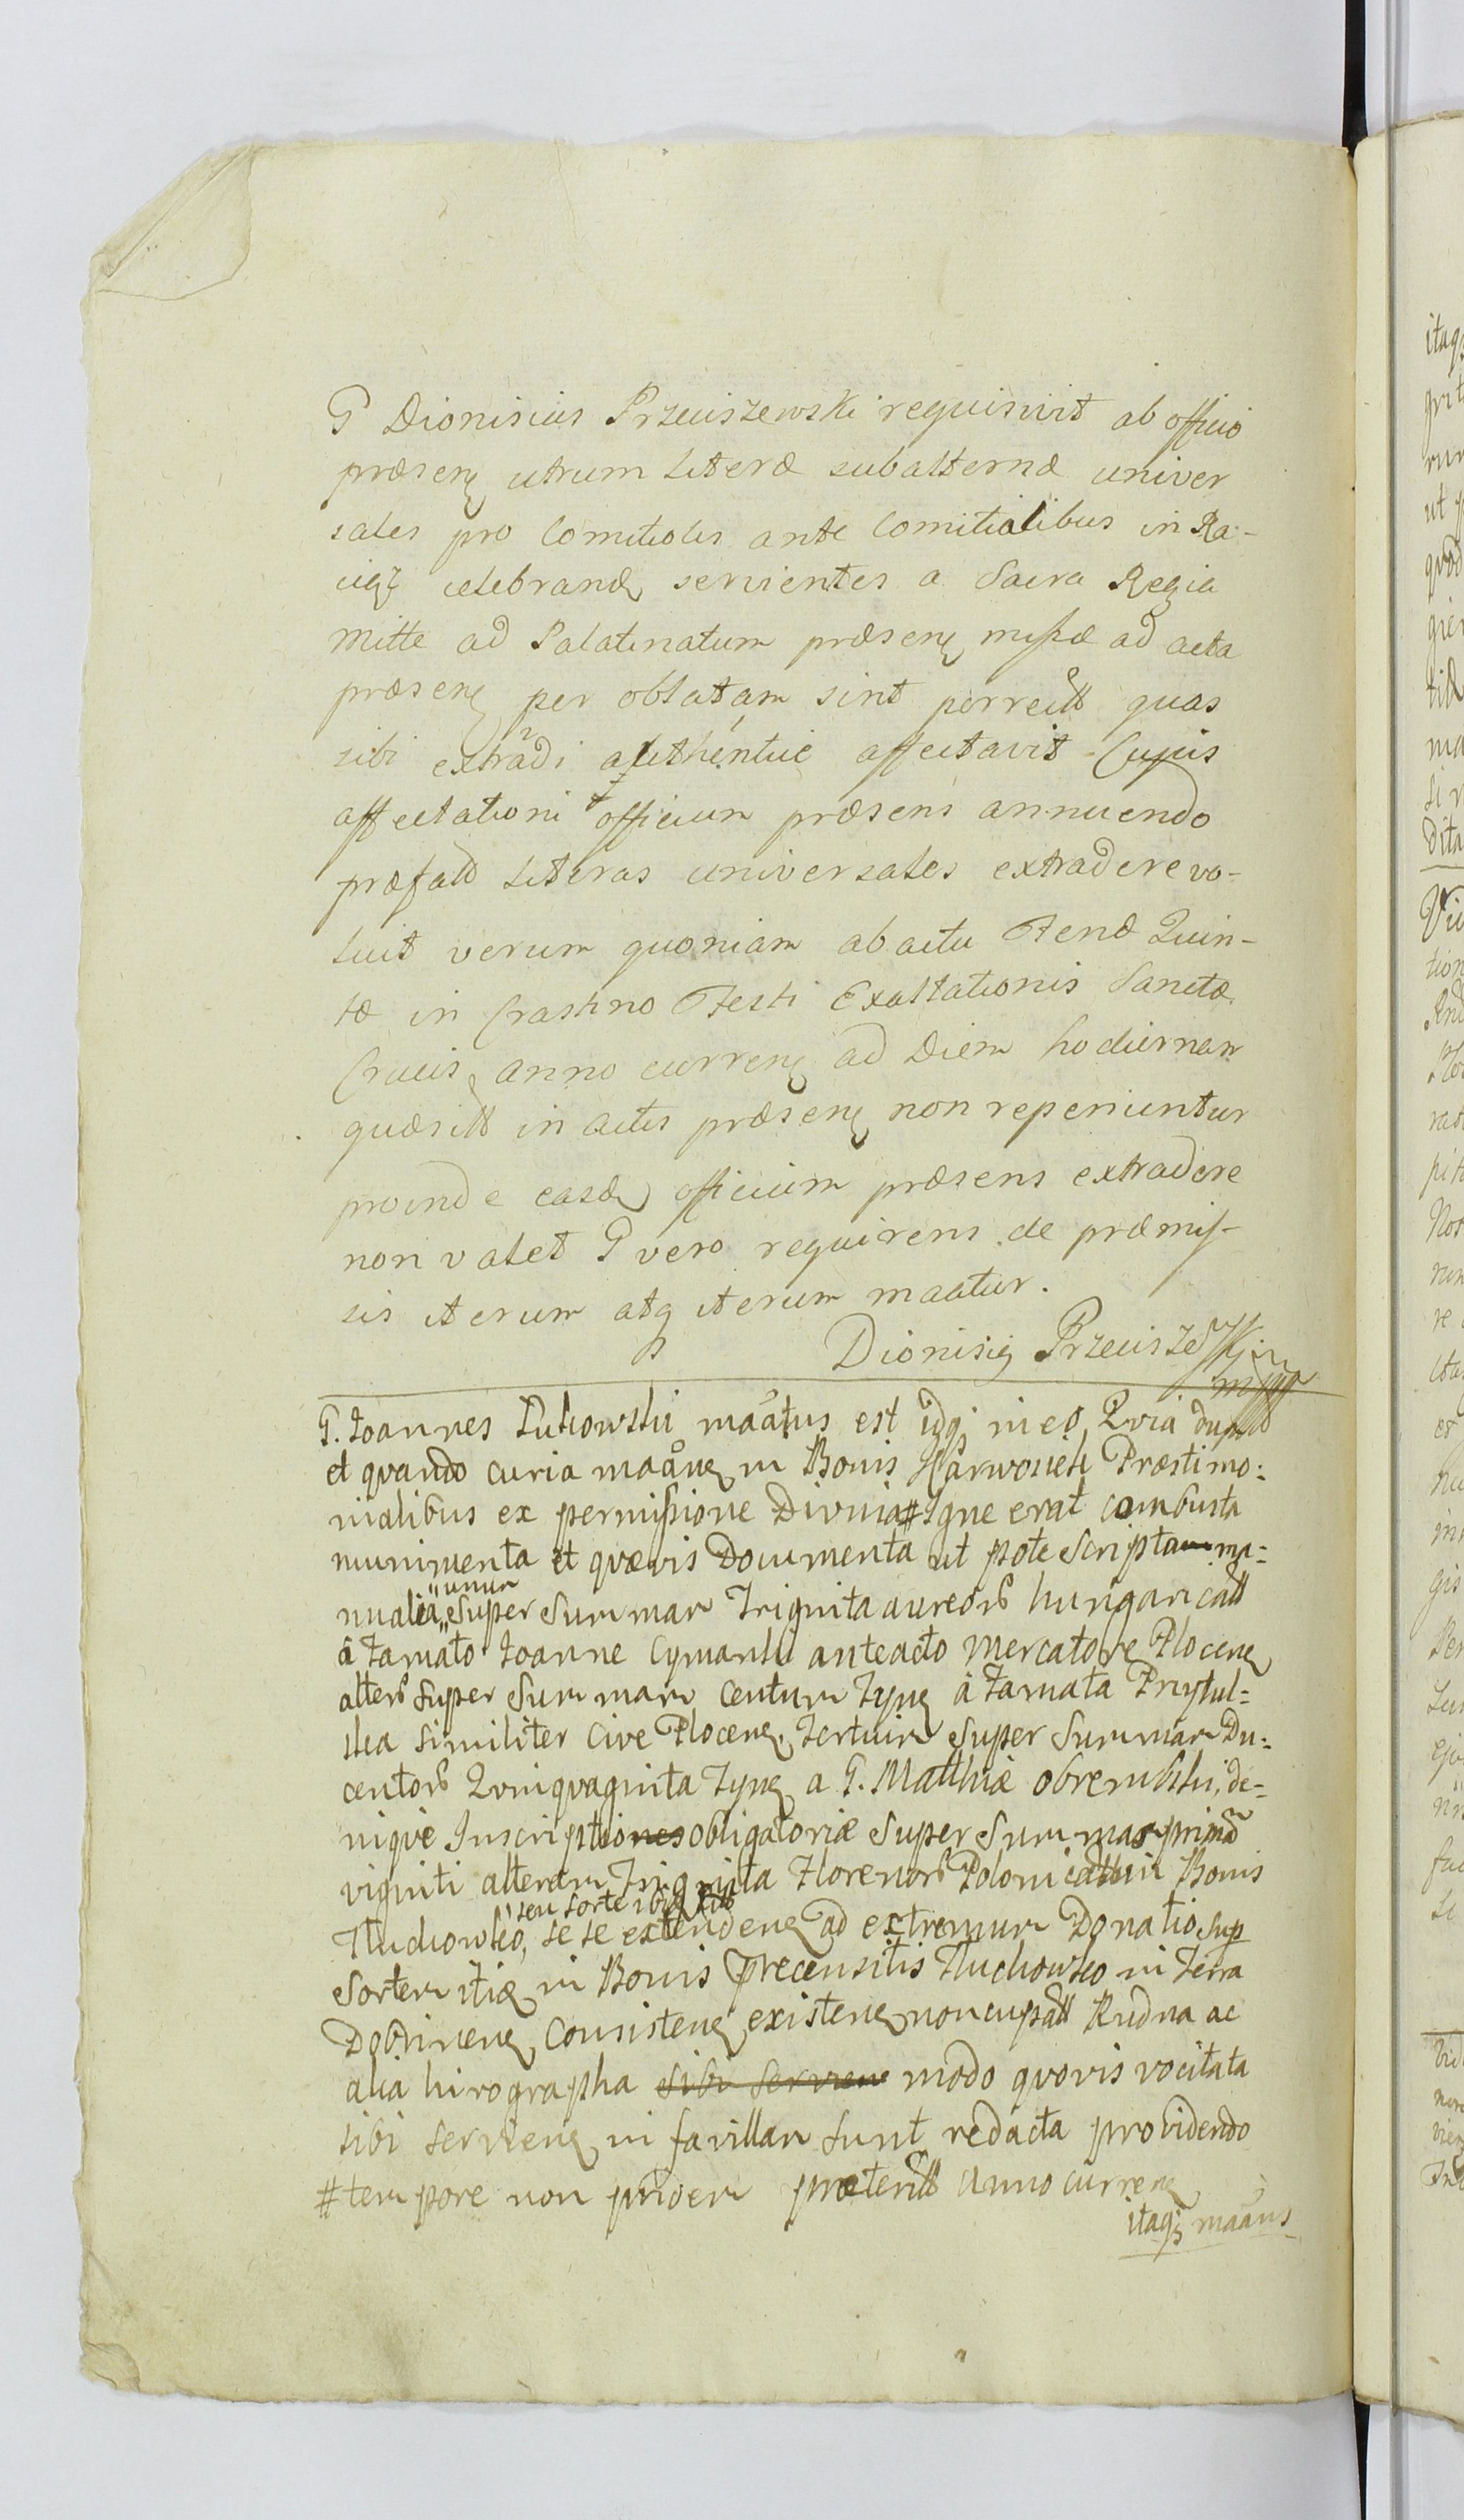 G Dionisius Przeciszewski requisivit ab officio
præsenꝫ utrum Literæ subalternæ univer
sales pro Comitiolis ante Comitialibus in Ra-
ciąż celebrandꝫ servientes a Sacra Regia
Mitte ad Palatinatum præsenꝫ missæ ad acta
præsenꝫ per oblatam sint porrectꝭ quas
sibi extradi authentice affectavit Cujus
affectationi officium præsens annuendo
præfatꝭ Literas universales extradere vo-
luit verum quoniam ab actu Feriæ Quin-
tæ in Crastino Festi Exaltationis Sanctæ
Crucis anno currenꝫ ad Diem hodiernam
quæsitꝭ in actis præsenꝫ non reperiuntur
proinde easdꝫ officium præsens extradere
non valet G vero requirens de præmis-
sis iterum atqꝫ iterum maatur.
Dionisiꝫ Przecisze
mpp
G. Joannes Lukowski maatus est idqꝫ in eo Qvia dum
et qvando curia maanꝫ in Bonis Karwosieki Præstimo:
nialibus ex permissione Divina # Igne erat combusta
munimenta et qvævis Documenta ut pote Scripta ma:
nualia, "unum" super Summam Triginta aureorꝭ hungaricalꝭ
à Famato Joanne Cymanski anteacto Mercatore Plocenꝫ
alterꝭ super Summam Centum Tynꝫ à Famata Przytul:
ska similiter Cive Plocenꝫ, Tertium super Summam Du:
centorꝭ Qvinqvaginta Tynꝫ a G. Matthiæ Obrembski, de:
niqve Inscriptiones obligatoriæ super Summas primã
viginti alteram Triginta Florenorꝭ Polonicalium in Bonis
"seu sorte ibidꝫ
Tluchowko, se se extendenꝫ ad extremum Donatio sup
Sortem itiæ in Bonis precensitis Tluchowko in Terra
Dobrinenꝫ Consistenꝫ existenꝫ noncupatꝭ Rudna ac
alia hirographa sibi servien modo qvovis vocitata
sibi servienꝫ in favillam sunt redacta providendo
# tempore non pridem præteritꝭ Anno currenꝫ
itaqꝫ maans